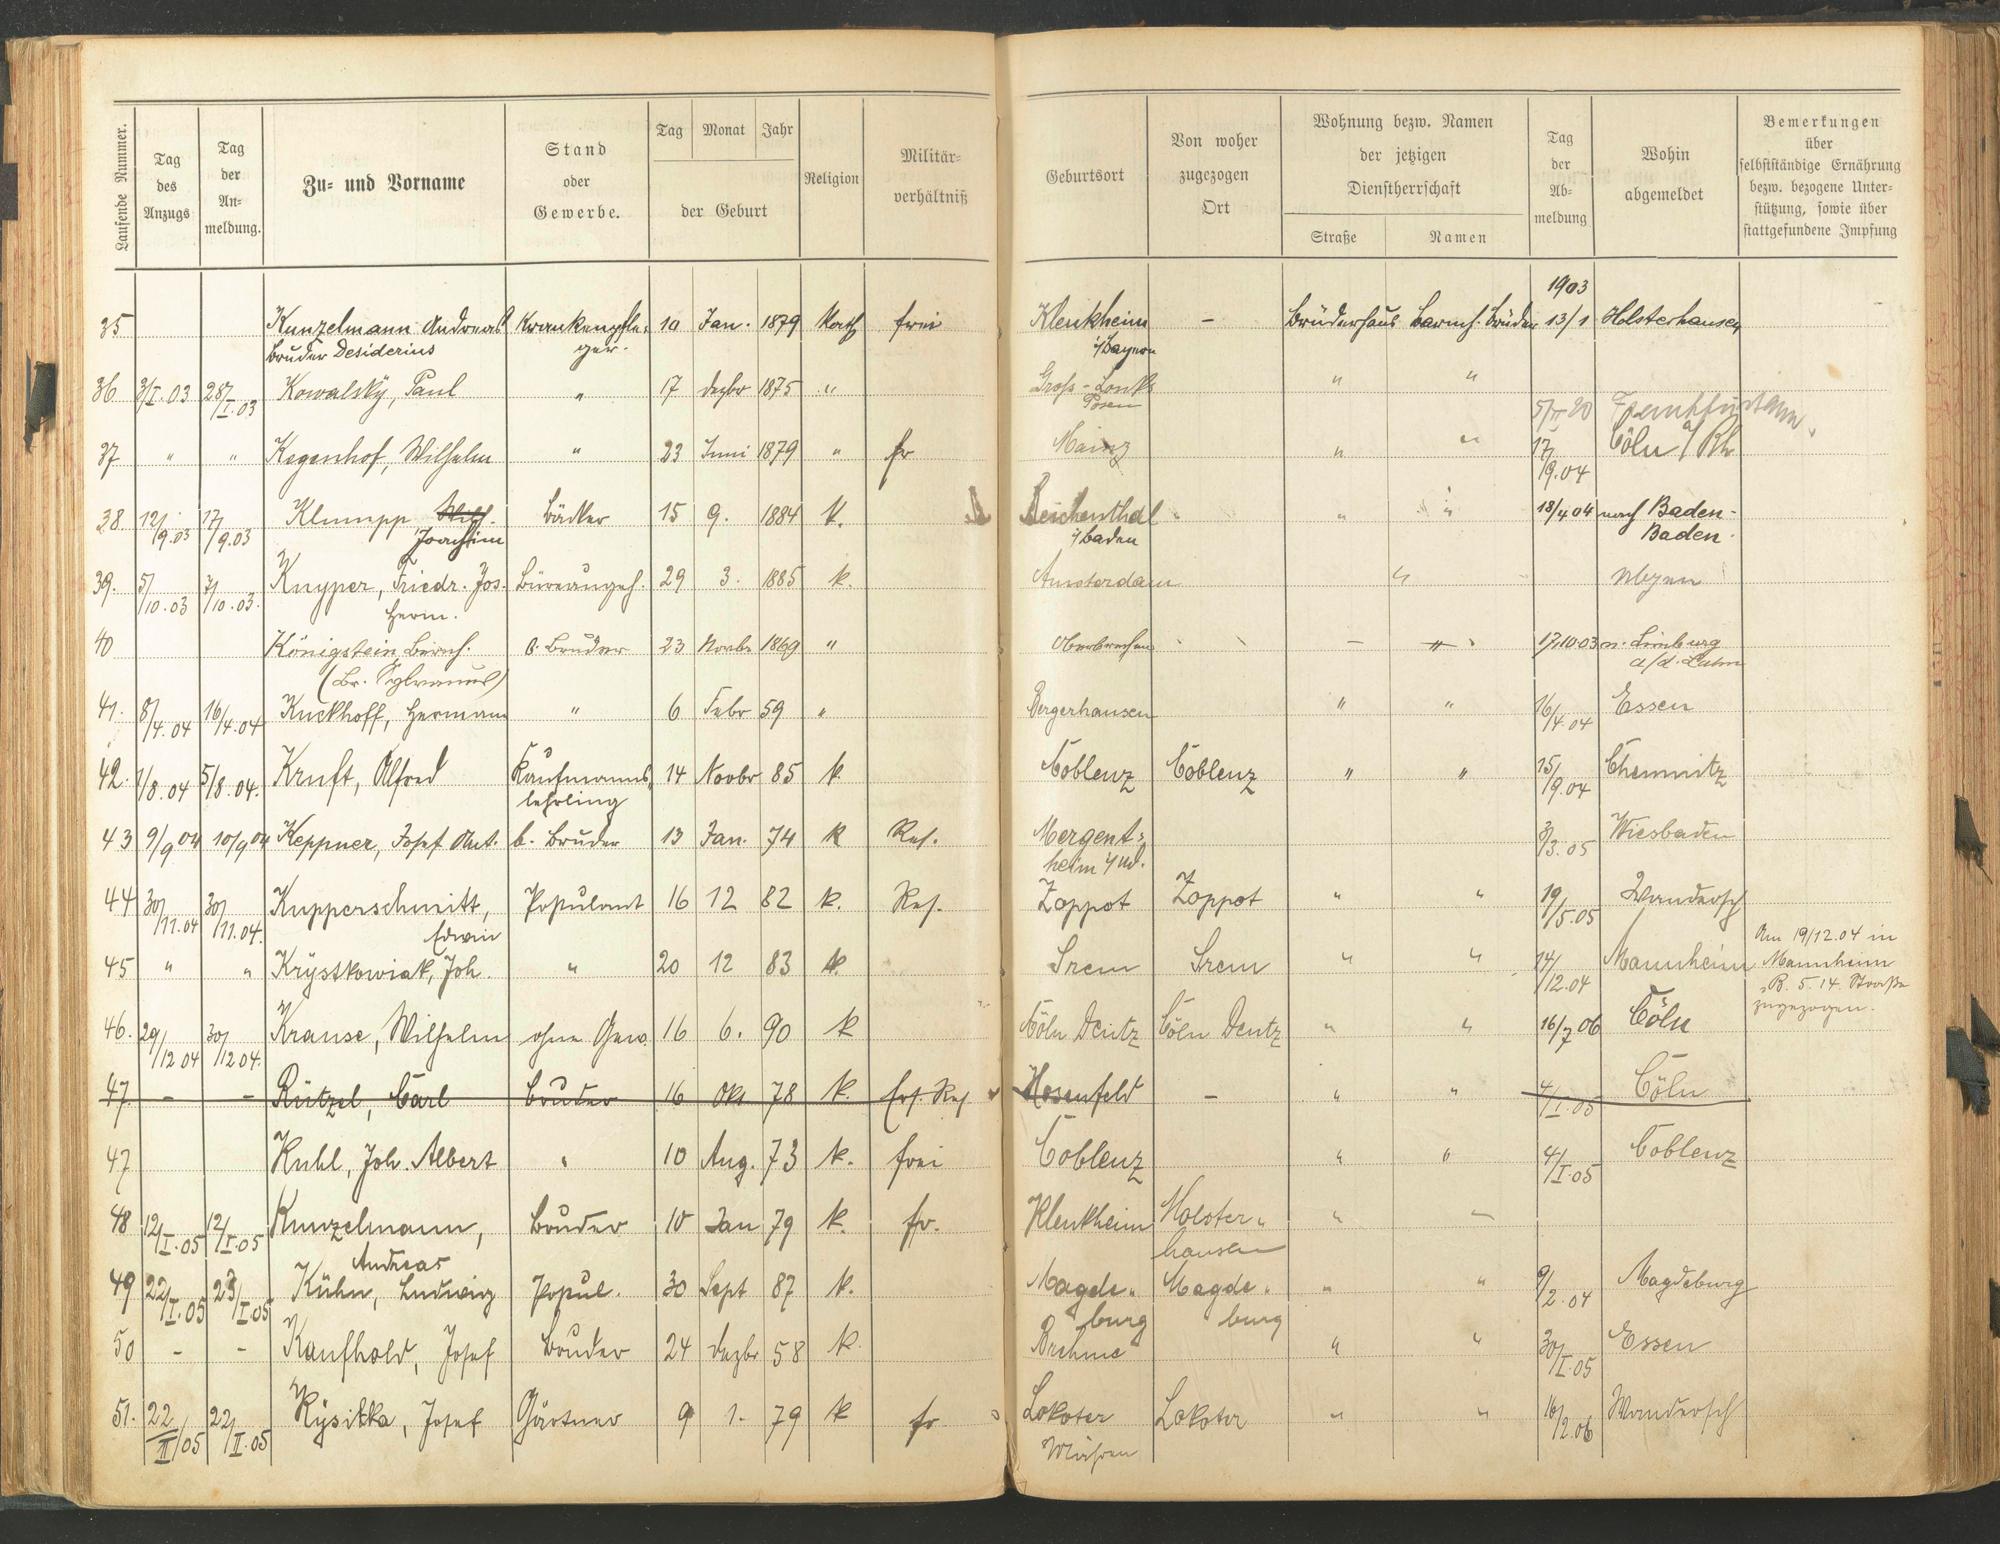 Laufende Nummer.
Tag des Anzugs
Tag der Anmeldung.
Zu- und Vorname
Stand oder Gewerbe.
Tag Monat Jahr
der Geburt
Religion
Militär-verhältniß
Geburtsort
Von woher zugezogen Ort
Wohnung bezw. Namen der jetzigen Dienstherrschaft
Straße Namen
Tag der Ab-meldung
Wohin abgemeldet
Bemerkungen über selbstständige Ernährung bezw. bezogene Unter-stützung, sowie über stattgefundene Impfung
1903
35 Kunzelmann Andreas Krankenpfle- 10 Jan. 1879 Kath frei Klenkheim – Brüderhaus Barmh. Brüder 13/1 Holsterhausen
Bruder Desiderius ger. i/Bayern
36 3/I.03 28/I.03 Kowalsky, Paul " 17 Dezbr 1875 " Groß- " "
Posen 5/II 20
37 " " Kegenhof, Wilhelm " 23 Juni 1879 " fr Mainz " " 17/9.04 Cöln a/Rh
38 12/9.03 17/9.03 Klumpp Wilh. Bäcker 15 9. 1884 K. Reichenthal " " " 18/4 04 nach Baden-
Joachim i/Baden Baden.
39. 5/10.03 7/10.03. Knyper, Friedr. Jos. Büreaugeh. 29 3. 1885 k. Amsterdam "
Herm.
40 Königstein, Bernh. b. Bruder 23 Novbr 1869 " Oberbrechen – " 17.10.03 n. Limburg
(Br. Sylvanus) a/d. Lahn
41. 8/4.04 16/4.04 Kuckhoff, Hermann " 6 Febr 59 " Bergerhausen " " 16/4.04 Essen
42. 1/8.04 5/8.04. Kruft, Alfred Kaufmanns- 14 Novbr 85 k. Coblenz Coblenz " " 15/9.04 Chemnitz
lehrling
43 9/9 04 10/9 04 Keppner, Josef Ant. b. Bruder 13 Jan. 74 k Res. Mergent- 3/3.05 Wiesbaden
heim i/W.
44 30/11.04 30/11.04. Kupperschmitt, Postulant 16 12 82 k. Res. Zoppot Zoppot " " 19/5.05 Wandersch
Edwin
45 " " Krystkowiak, Joh. " 20 12 83 k. Srem Srem " " 14/12.04 Mannheim
Am 19/12.04 in
Mannheim
B. 5. 14. Straße
zugezogen.
46. 29/12 04 30/12 04. Krause, Wilhelm ohne Gew. 16 6. 90 k Cöln Deutz Cöln Deutz " " 16/7 06 Cöln
47. – – Rützel, Carl Bruder 16 Okt 78 k. Ers. Res. Hosenfeld – " " 4/I.05 Cöln
47 Kuhl, Joh. Albert " 10 Aug. 73 k. frei Coblenz " " 4/I.05 Coblenz
48 12/I.05 12/I.05 Kunzelmann, Bruder 10 Jan 79 k. fr. Klenkheim Holster- " "
Andreas hausen
49 22/I.05 23/I.05 Kühn, Ludwig Postul. 30 Sept 87 k. Magde- Magde- " " 9/2.04 Magdeburg
burg burg
50 – – Kaufhold, Josef Bruder 24 Dezbr 58 k. Brehme " " 30/I.05 Essen
51. 22/II/05 22/II.05 Kysitka, Josef Gärtner 9 1. 79 k fr Lokoter Lokoter " " 16/2.06 Wandersch
Mähren